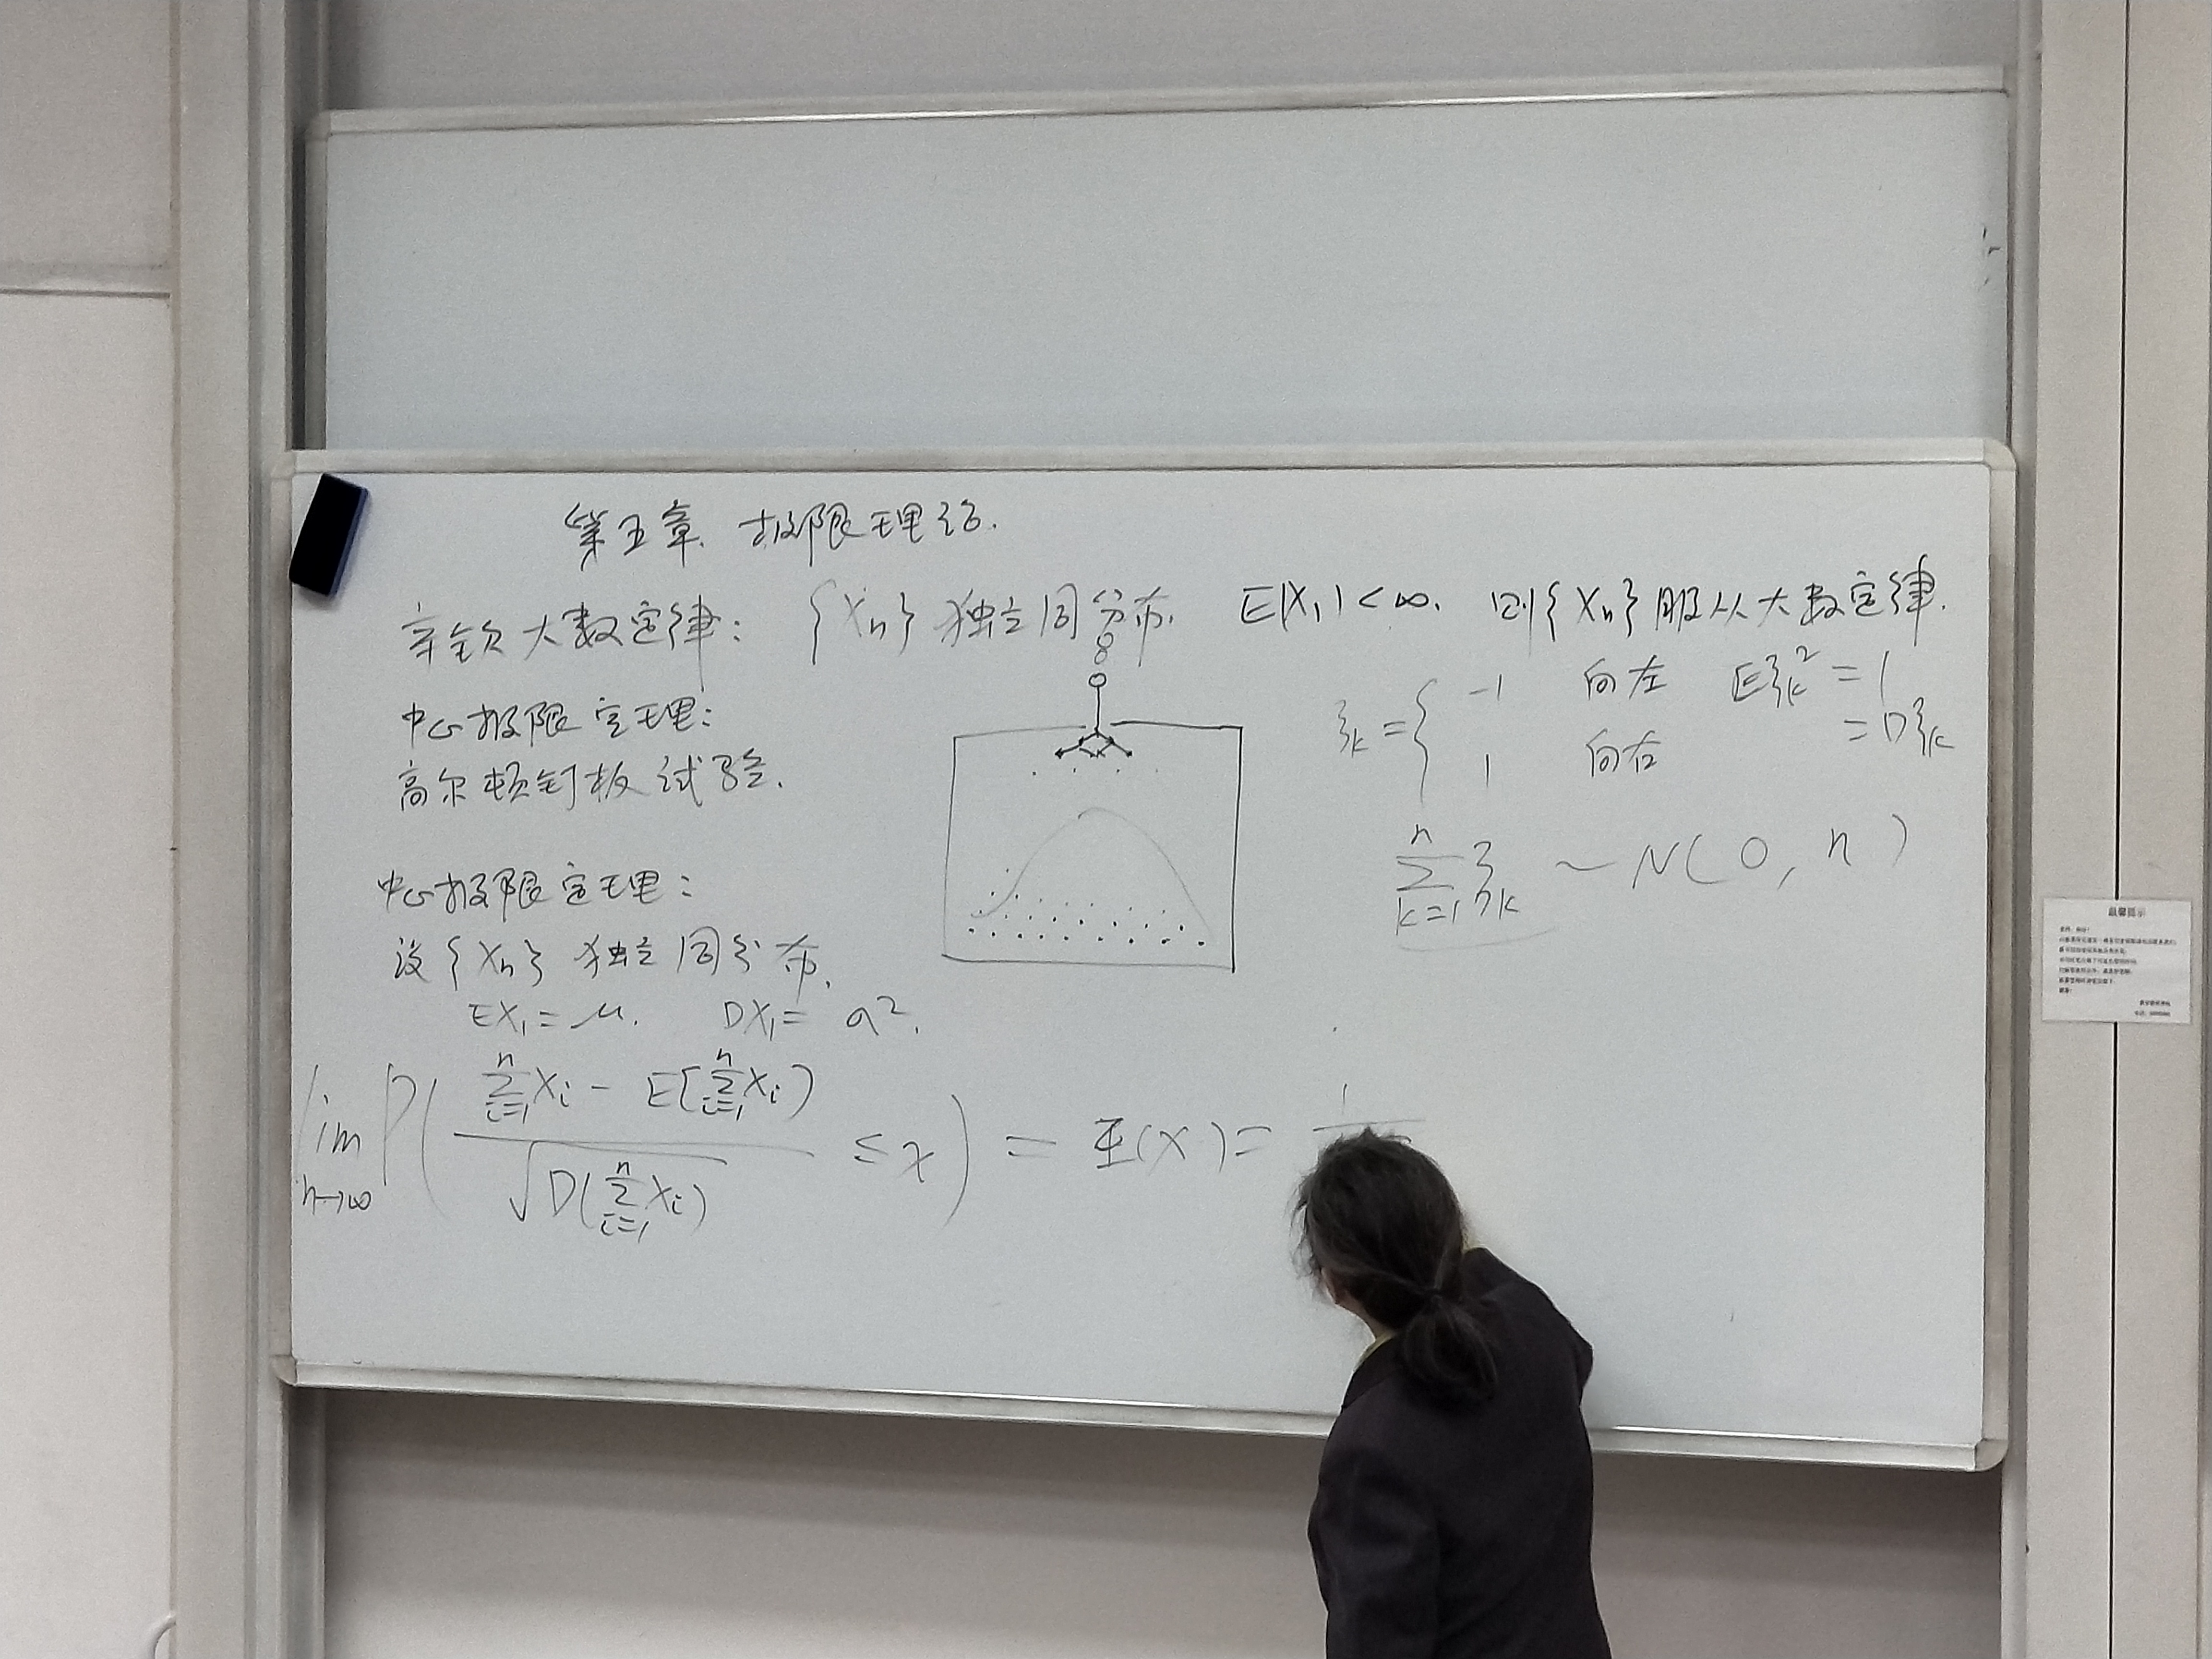 第五章 极限理论.
辛钦大数定律: {Xn} 独立同分布. E|X₁|<∞. 则{Xn}服从大数定律.
中心极限定理:
高尔顿钉板试验.
ξk = { -1 向左
1 向右
Eξk² = 1
= Dξk
∑_{k=1}^{n} ξk ~ N(0, n)
中心极限定理:
设{Xn} 独立同分布.
EX₁=μ. DX₁= σ².
lim_{n→∞} P( (∑_{i=1}^{n} Xi - E(∑_{i=1}^{n} Xi)) / √D(∑_{i=1}^{n} Xi) ≤ x ) = Φ(x) = 1
温馨提示